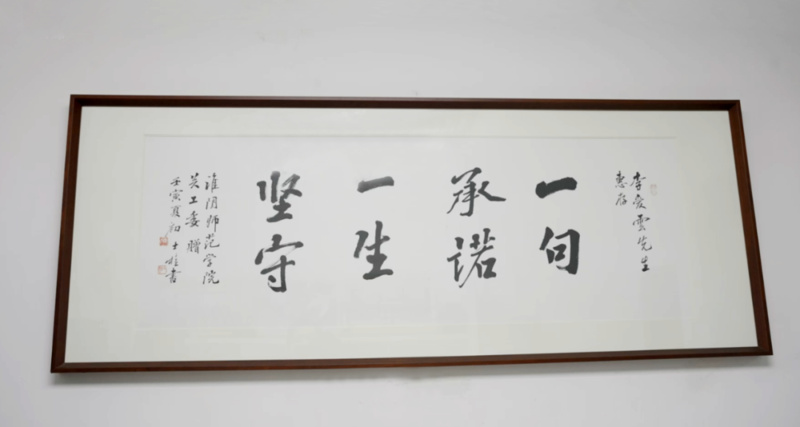 李爱雲先生
惠存
一句
承诺
一生
坚守
淮阴师范学院
关工委赠
壬寅夏初士旺书